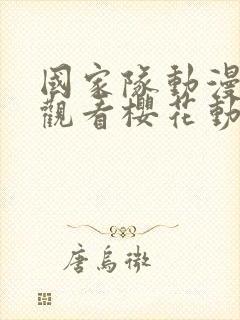 國家隊動漫
觀看櫻花動
唐烏微